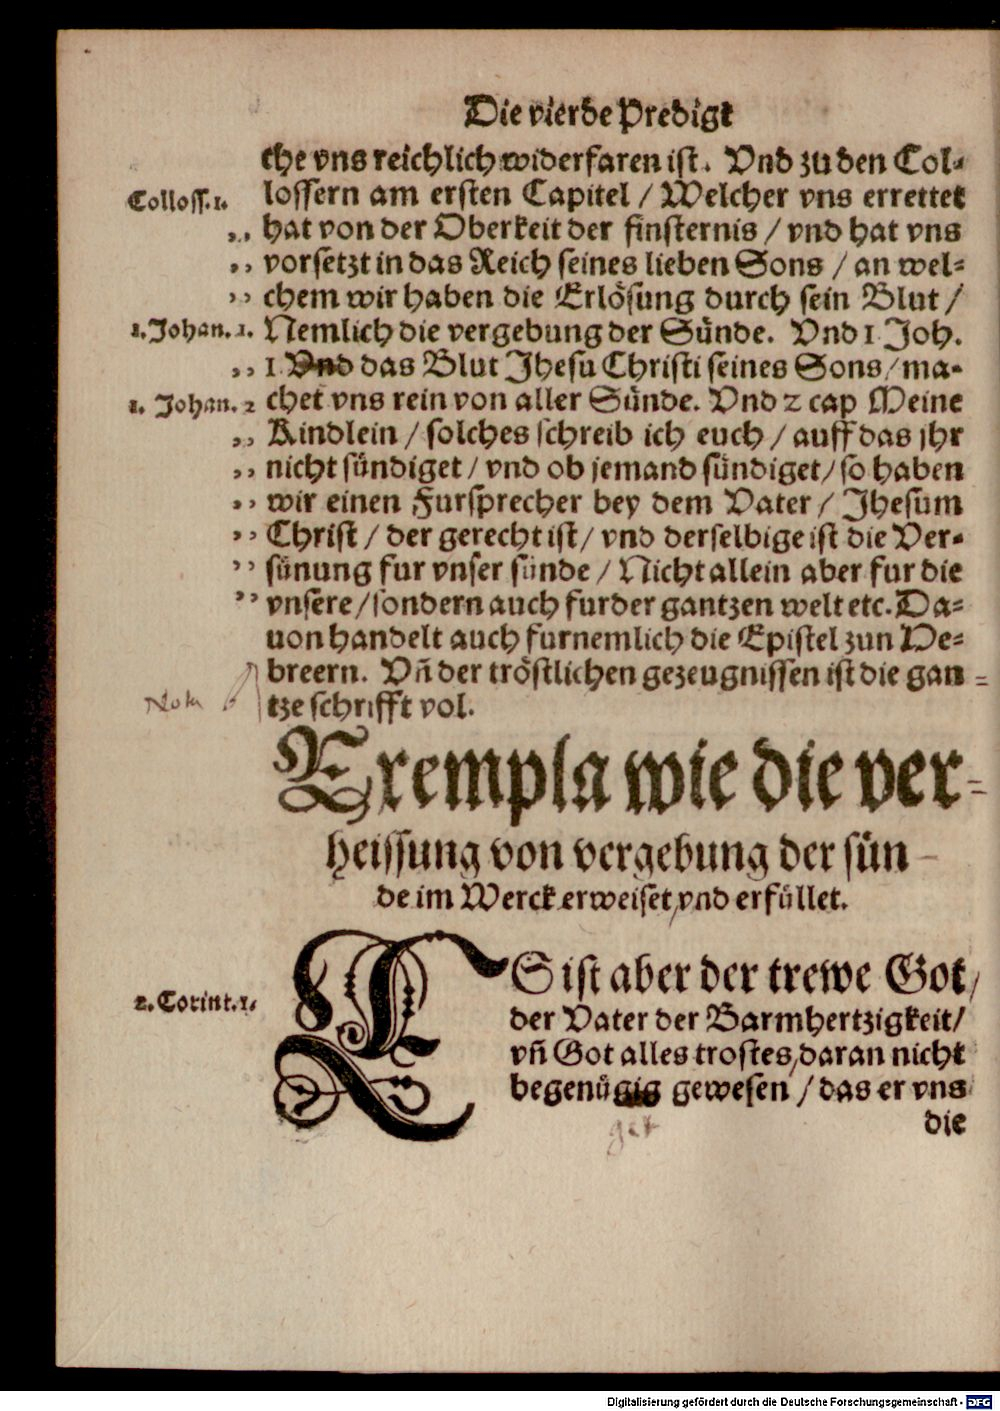 Die vierde Predigt
che vns reichlich widerfaren ist. Vnd zu den Col-
Colloss. 1. lossern am ersten Capitel / Welcher vns errettet
,, hat von der Oberkeit der finsternis / vnd hat vns
,, vorsetzt in das Reich seines lieben Sons / an wel-
,, chem wir haben die Erlösung durch sein Blut /
1. Johan. 1. Nemlich die vergebung der Sünde. Vnd 1 Joh.
,, 1 Vnd das Blut Jhesu Christi seines Sons / ma-
1. Johan. 2 chet vns rein von aller Sünde. Vnd 2 cap Meine
,, Kindlein / solches schreib ich euch / auff das jhr
,, nicht sündiget / vnd ob jemand sündiget / so haben
,, wir einen Fursprecher bey dem Vater / Jhesum
,, Christ / der gerecht ist / vnd derselbige ist die Ver-
,, sünung fur vnser sünde / Nicht allein aber fur die
,, vnsere / sondern auch fur der gantzen welt etc. Da-
uon handelt auch furnemlich die Epistel zun He-
breern. Vñ der tröstlichen gezeugnissen ist die gan-
Nota tze schrifft vol.
Exempla wie die ver-
heissung von vergebung der sün-
de im Werck erweiset / vnd erfüllet.
ES ist aber der trewe Got /
2. Corint. 1. der Vater der Barmhertzigkeit /
vñ Got alles trostes / daran nicht
begenügig gewesen / das er vns
get
die
Digitalisierung gefördert durch die Deutsche Forschungsgemeinschaft - DFG